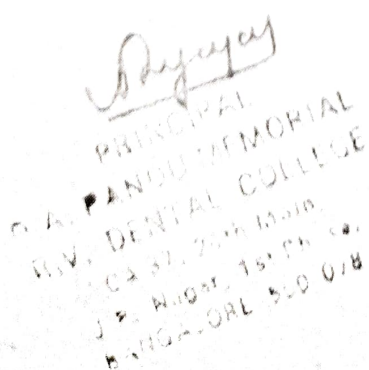 PRINCIPAL
D. A. PANDU MEMORIAL
R.V. DENTAL COLLEGE
CA 37, 24th Main,
J.P. Nagar, 1st Phase,
BANGALORE 560 078